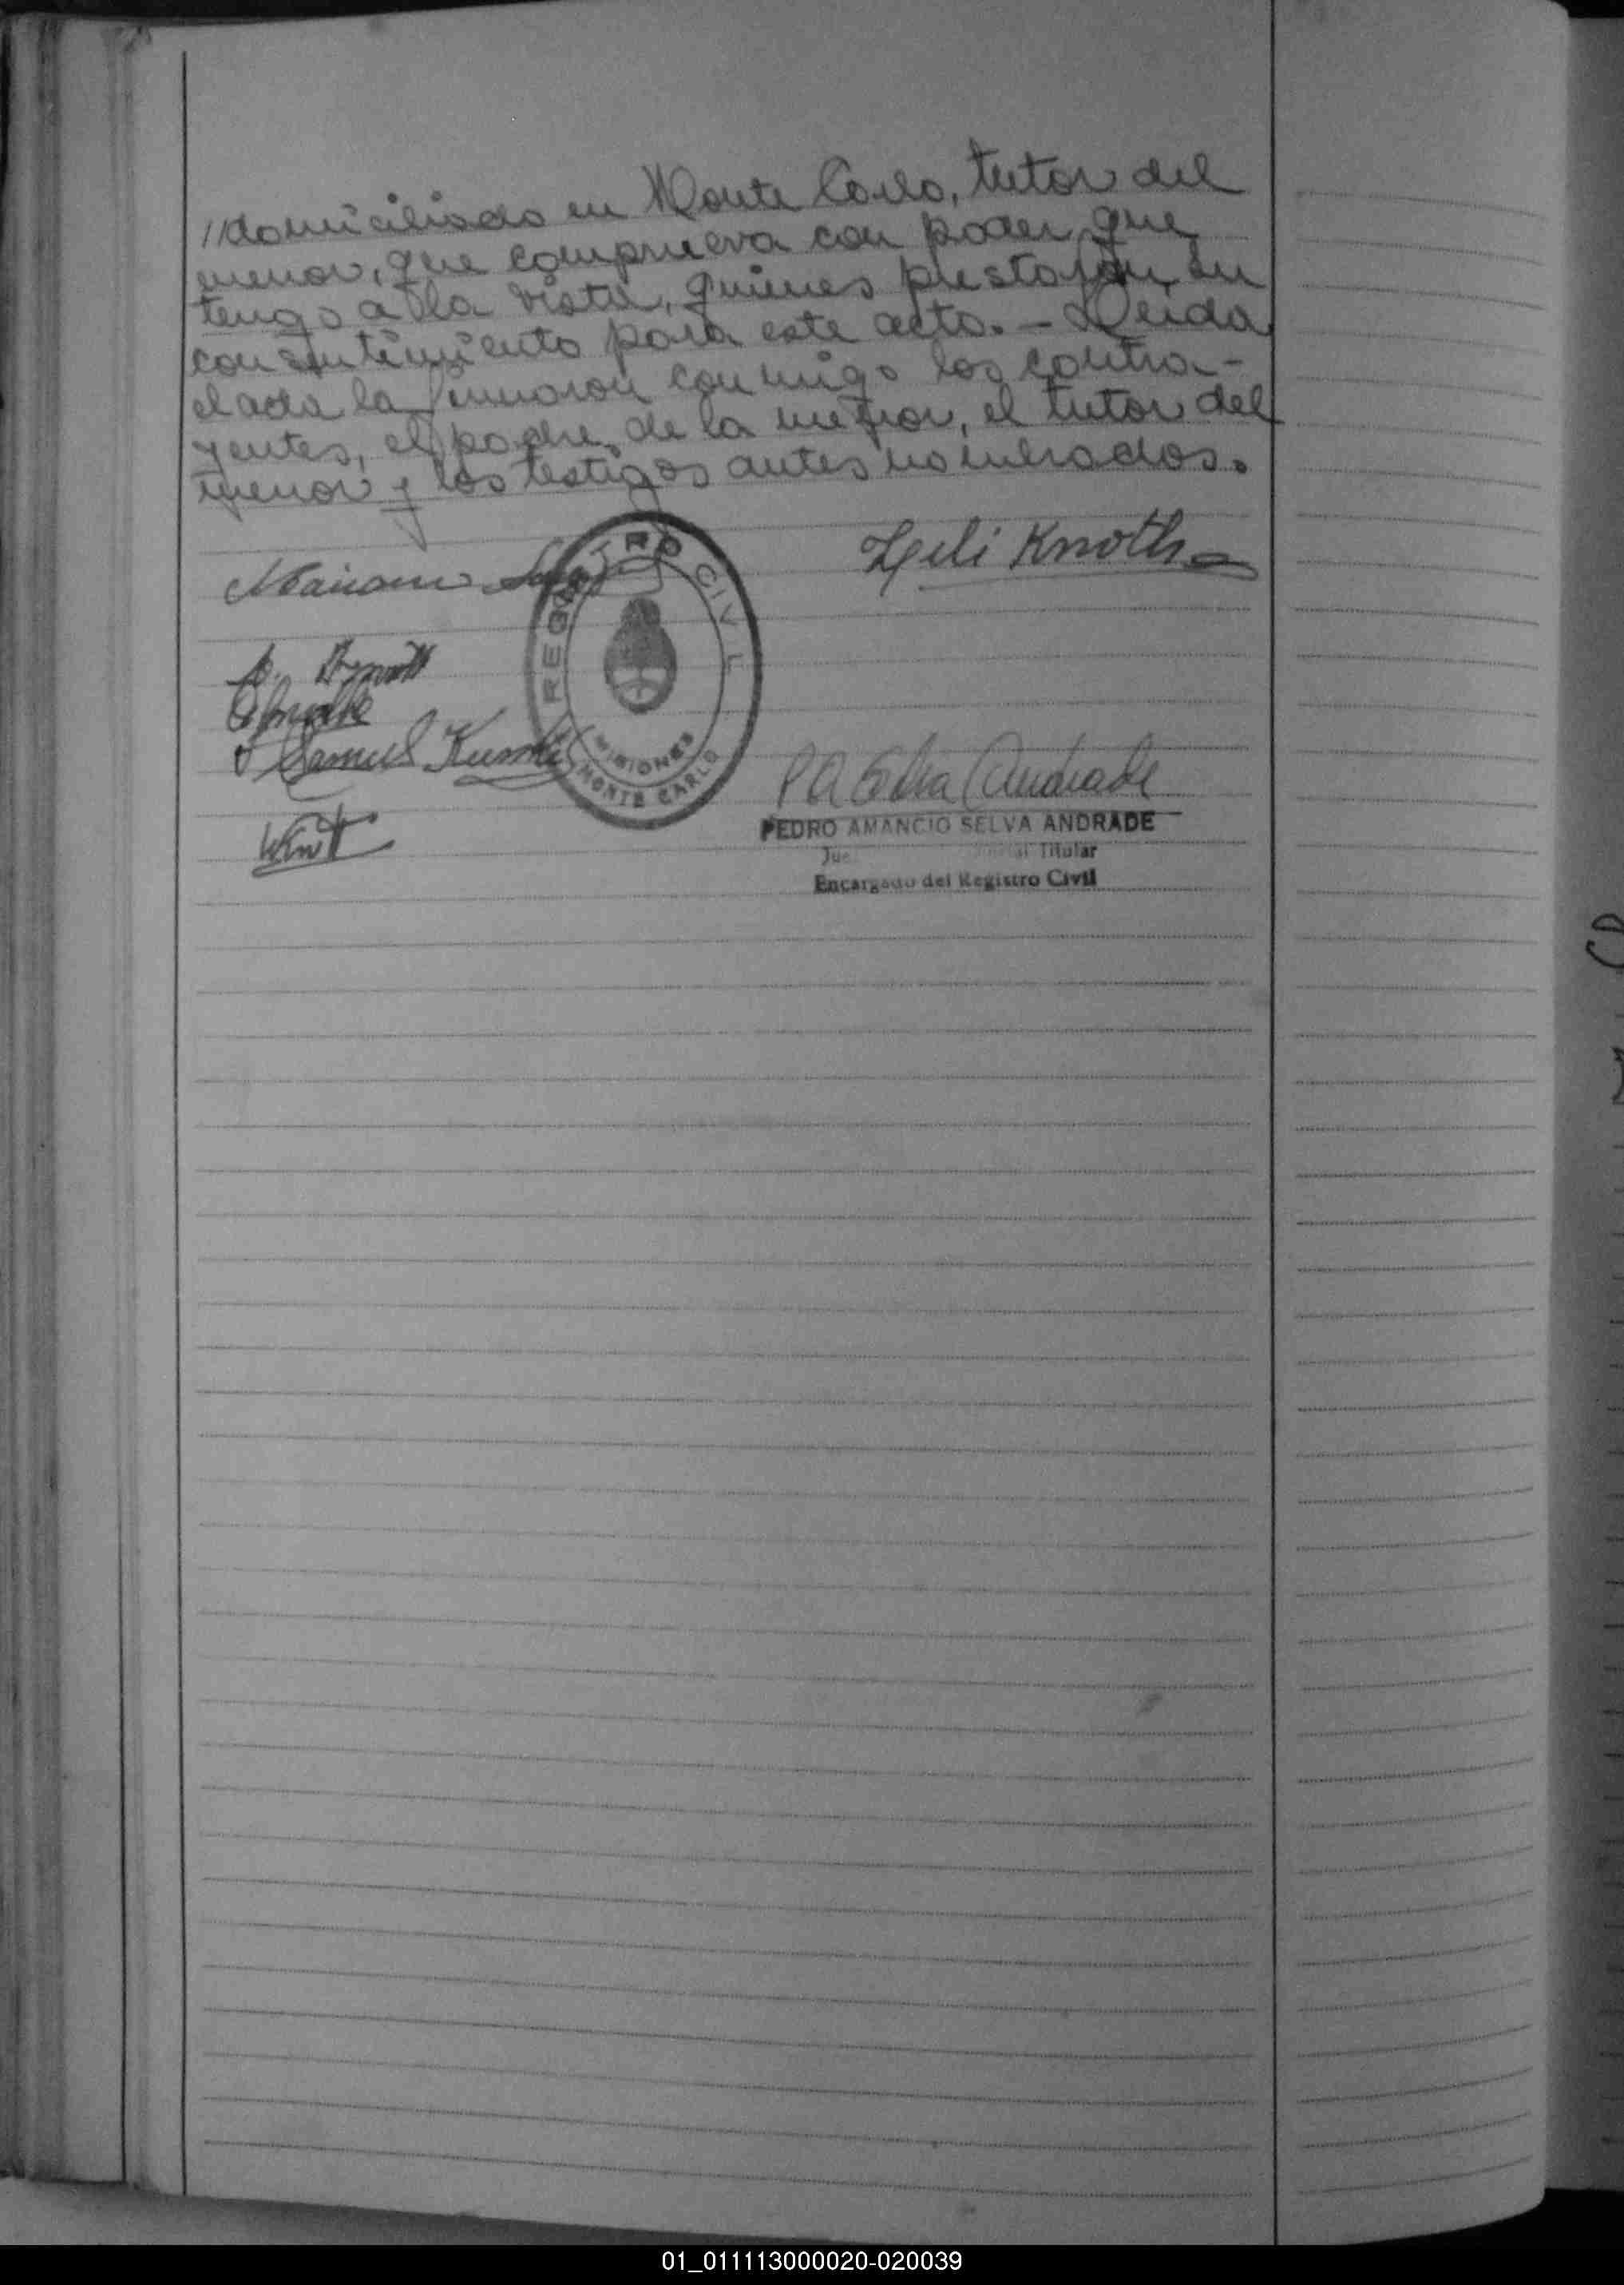 //domiciliado en Monte Carlo, tutor del
menor, que comprueva con poder que
tengo a la vista, quienes prestaron su
consentimiento para este acto. - Leida
el acta la firmaron conmigo los contra-
yentes, el padre de la menor, el tutor del
menor y los testigos antes nombrados.
Mariano
Leli Knoth
REGISTRO CIVIL
MISIONES
MONTE CARLO
Samuel
P A Selva Andrade
PEDRO AMANCIO SELVA ANDRADE
Titular
Encargado del Registro Civil
01_011113000020-020039